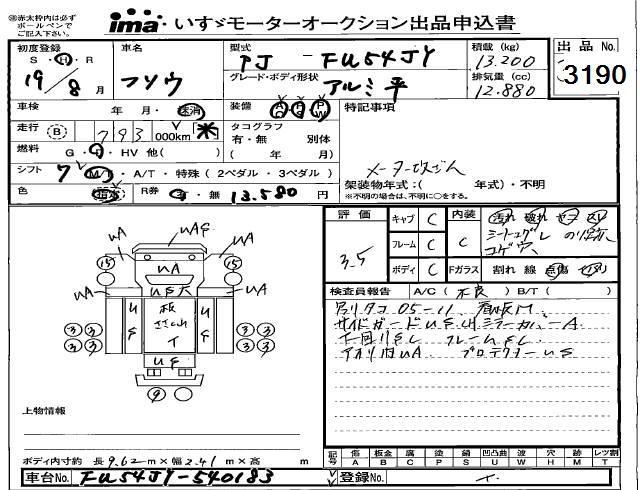 ※赤太枠内は必ず
ボールペンで
ご記入下さい。
ima いすゞモーターオークション出品申込書
初度登録 車名 型式 PJ - FU54JY 積載 (kg) 13.200 出品 No.
S・H・R 19/8月 フソウ グレード・ボディ形状 アルミ平 排気量 (cc) 12.880 3190
車検 年・月・抹消 装備 AC PS PW 特記事項
走行 B 793 000km ※ タコグラフ
有・無 別体
燃料 G・D・HV 他( ) ( 年 月)
シフト 7 MT・A/T・特殊(2ペダル・3ペダル) メーター改ざん
架装物年式:( 年式)・不明
※不明の場合は、不明に○をする。
色 R券 有・無 13.580 円
評価 3.5 キャブ C 内装 C 汚れ 破れ
フレーム C シートコゲ
コゲ穴
ボディ C Fガラス 割れ 線 点傷
検査員報告 A/C( 不良 ) B/T( )
05-11 看板M
サイドガードUS
下回りSC フレームSC
アオリ UA プロテクターUS
UA UAS UA
15 UA 15
UA US大 UA
US US 板 ササクレ イ US US
3 3 3 3
3 3 3 3
US
9
上物情報
ボディ内寸約 長 9.62 m×幅 2.41 m×高 m
記号 傷 A 板金 B 腐 C 塗 P 錆 S 凹凸曲 U 波 W 穴 H 跡 M レツ割 T
車台No. FU54JY-540183 登録No.